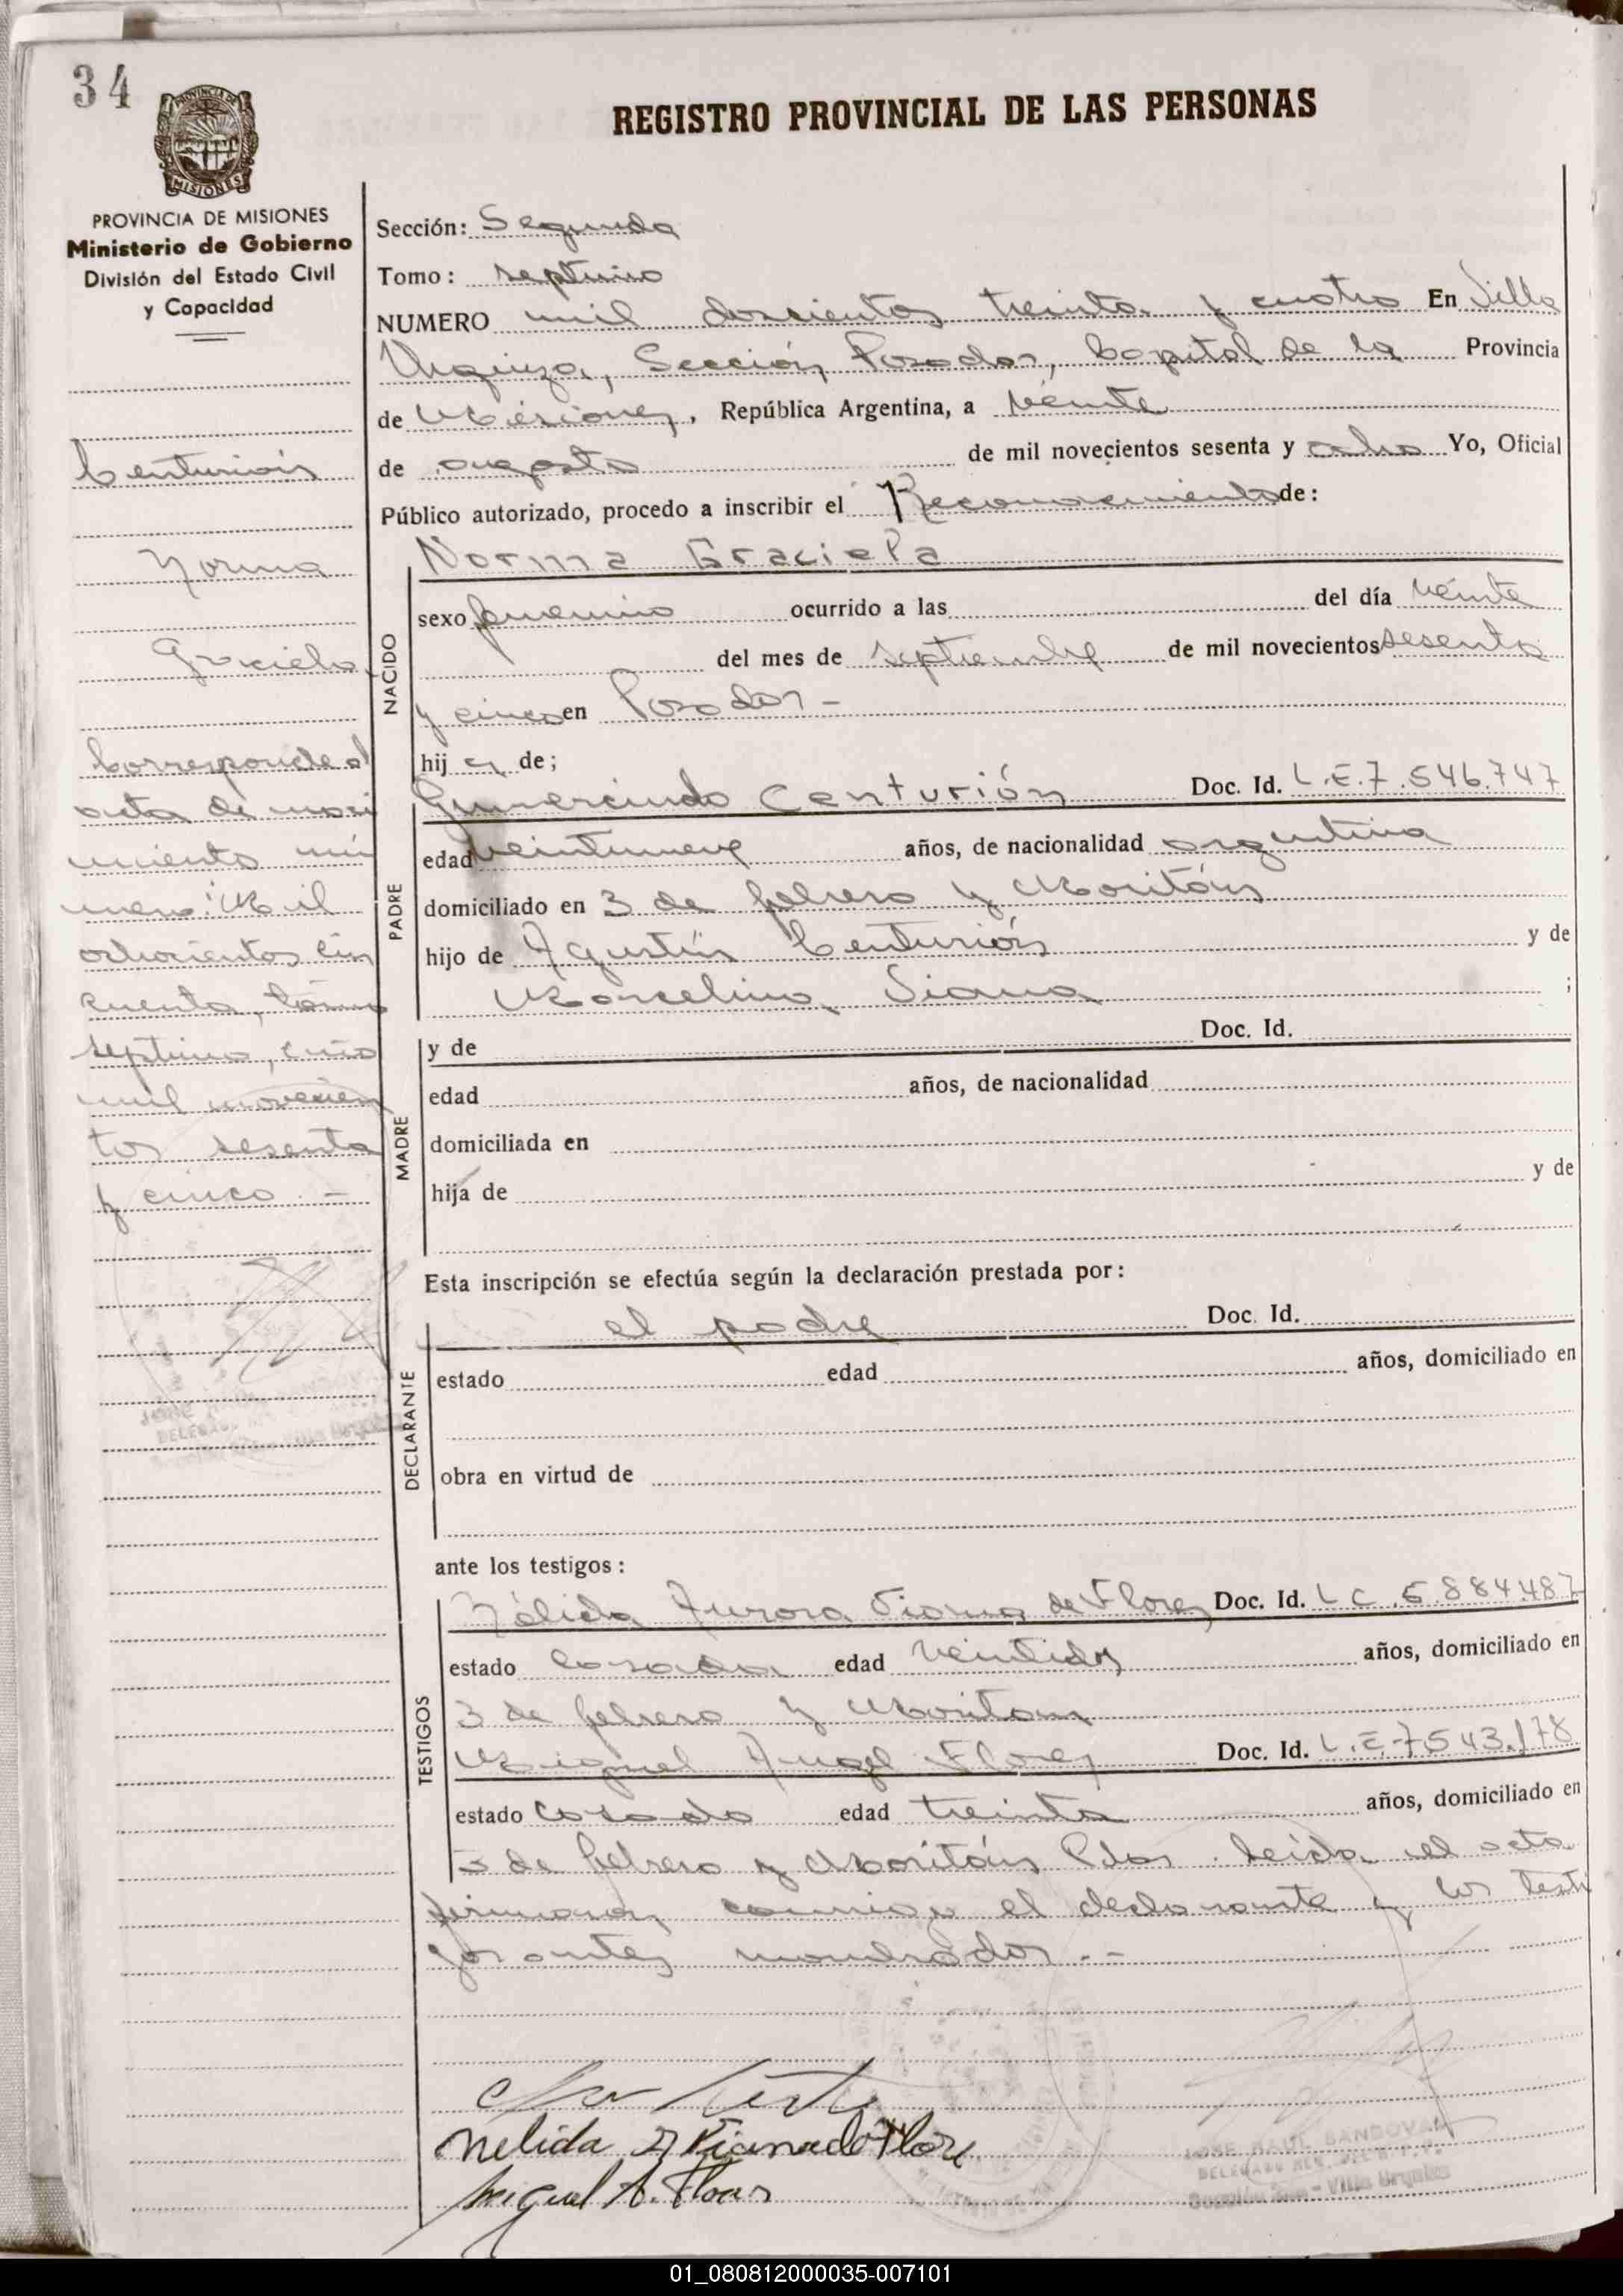 34
PROVINCIA DE MISIONES
REGISTRO PROVINCIAL DE LAS PERSONAS
PROVINCIA DE MISIONES
Ministerio de Gobierno
División del Estado Civil
y Capacidad
Centurión
Norma
Graciela
Corresponde al
acta de naci
miento nú
mero: Mil
ochocientos cin
cuenta, tomo
septimo, año
mil novecien
tos sesenta
y cinco. -
Sección: Segunda
Tomo: septimo
NUMERO mil doscientos treinta y cuatro En Villa
Urquiza, Sección Posadas, Capital de la Provincia
de Misiones, República Argentina, a veinte
de agosto de mil novecientos sesenta y ocho Yo, Oficial
Público autorizado, procedo a inscribir el Reconocimiento de:
NACIDO
Norma Graciela
sexo femenino ocurrido a las del día veinte
del mes de septiembre de mil novecientos sesenta
y cinco en Posadas -
hij a de;
PADRE
Gumercindo Centurión Doc. Id. L.E.7.546.747
edad veintinueve años, de nacionalidad argentina
domiciliado en 3 de febrero y Moritán
hijo de Agustín Centurión y de
Marcelina Viana ;
MADRE
y de Doc. Id.
edad años, de nacionalidad
domiciliada en
hija de y de
Esta inscripción se efectúa según la declaración prestada por:
DECLARANTE
el padre Doc. Id.
estado edad años, domiciliado en
obra en virtud de
ante los testigos:
TESTIGOS
Nélida Aurora Viana de Flores Doc. Id. L C. 5.884.487
estado casada edad veintidos años, domiciliado en
3 de febrero y Moritan
Miguel Angel Flores Doc. Id. L.E.7543.178
estado casado edad treinta años, domiciliado en
3 de febrero y Moritán Pdas. Leída el acta
firmaron conmigo el declarante y los testi
gos antes nombrados. -
Nelida A Viana de Flore
Miguel A. Flores
JOSE RAUL SANDOVAL
01_080812000035-007101